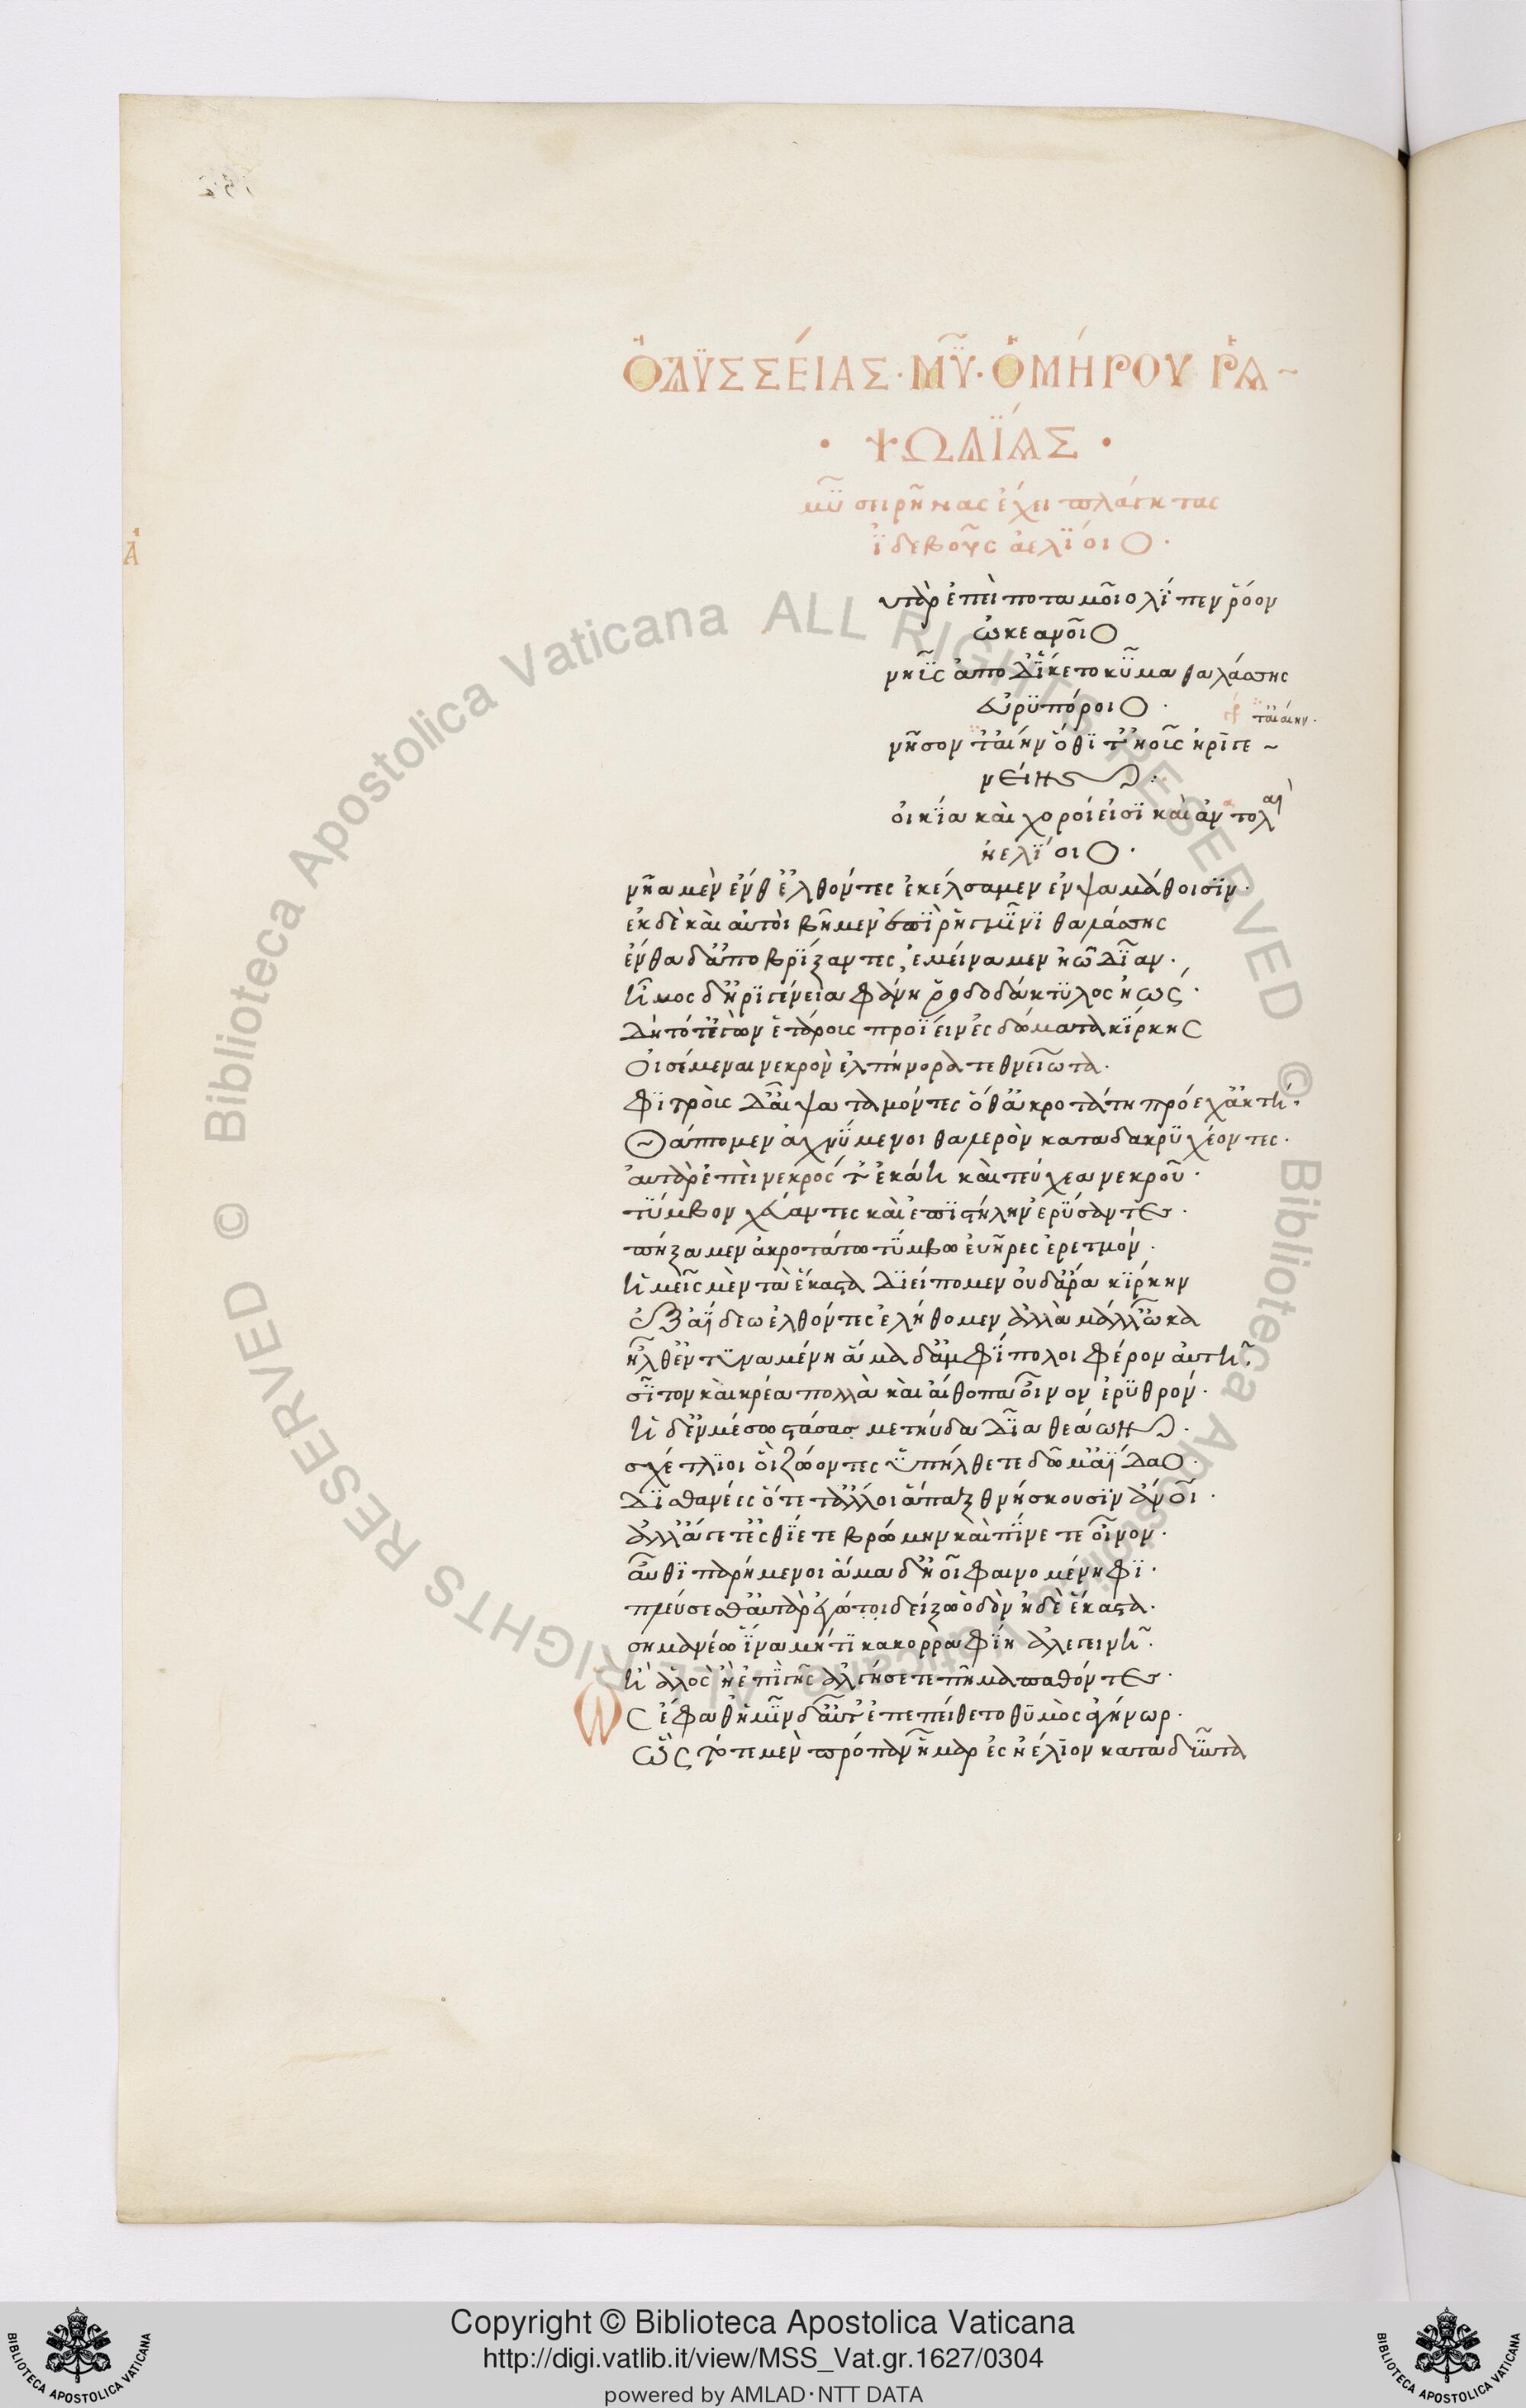 ὈΔΥΣΣΕΊΑΣ · Μ͂Υ · ὉΜΉΡΟΥ ῬΑ~
· ΨΩΔΪ́ΑΣ ·
μῦ σειρῆνας ἔχει πλάγκτας
ἰδε βοῦς ἀελΐοιο ·
Ἀ
υτὰρ ἐπεὶ ποταμοῖο λΐπεν ῥόον
ὠκεανοῖο
νηῢς ἀπο δΐκετο κῦμα θαλάσσης
εὐρϋπόροιο ·
νῆσον τ' αἰαίην ὅθϊ τ' ἠοῦς ἠρϊγε~
νείης ·
οἰκΐα καὶ χοροί εἰσϊ καὶ ἀντολαὶ
ἠελΐοιο ·
νῆα μὲν ἔνθ' ἐλθόντες ἐκέλσαμεν ἐν ψαμάθοισϊν ·
ἐκ δὲ καὶ αὐτοὶ βῆμεν ἐπϊ ῥηγμῖνϊ θαλάσσης
ἔνθα δ' ἀποβρΐξαντες ἐμείναμεν ἠῶ δῖαν ·
ἦμος δ' ἠρϊγένεια φάνη ῥοδοδάκτϋλος ἠώς ·
δὴ τότ' ἐγὼν ἑτάρους προΐειν ἐς δώματα κΐρκης
οἰσέμεναι νεκρὸν ἐλπήνορα τεθνειῶτα ·
φϊτροὺς δ' αἶψα ταμόντες ὅθ' ἀκροτάτη πρόεχ' ἀκτή ·
θάπτομεν ἀχνΰμενοι θαλερὸν καταδακρϋ χέοντες ·
αὐτὰρ ἐπεὶ νεκρός τ' ἐκάη καὶ τεύχεα νεκροῦ ·
τΰμβον χεύαντες καὶ ἐπϊ στήλην ἐρΰσαντες ·
πήξαμεν ἀκροτάτω τΰμβω εὐῆρες ἐρετμόν ·
ἡμεῖς μὲν τὰ ἕκαστα διείπομεν οὐδ' ἄρα κΐρκην
ἐξ ἀΐδεω ἐλθόντες ἐλήθομεν ἀλλὰ μάλλ' ὦκα
ἦλθ' ἐντϋναμένη ἅμα δ' ἀμφΐπολοι φέρον αὐτῆ ·
σῖτον καὶ κρέα πολλὰ καὶ αἴθοπα οἶνον ἐρϋθρόν ·
ἡ δ' ἐν μέσω στάσα μετηύδα δῖα θεάων ·
σχέτλϊοι οἳ ζώοντες ὑπήλθετε δῶμ' ἀΐδαο ·
δϊσθανέες ὅτε τ' ἄλλοι ἅπαξ θνήσκουσϊν ἄνοι ·
ἀλλ' ἄγετ' ἐσθΐετε βρώμην καὶ πΐνετε οἶνον ·
αὖθϊ πανήμεροι ἅμα δ' ἠοῖ φαινομένηφϊ ·
πλεύσεσθ' αὐτὰρ ἐγώ τοι δείξω ὁδὸν ἠδὲ ἕκαστα ·
σημανέω ἵνα μή τϊ κακορραφΐη ἀλεγεινῆ ·
ἢ ἁλὸς ἢ ἐπὶ γῆς ἀλγήσετε πῆμα παθόντες ·
Ὣς ἔφαθ' ἡμῖν δ' αὖτ' ἐπεπείθετο θϋμὸς ἀγήνωρ ·
ὣς τότε μὲν πρόπαν ἦμαρ ἐς ἠέλϊον καταδῦντα
Copyright © Biblioteca Apostolica Vaticana
http://digi.vatlib.it/view/MSS_Vat.gr.1627/0304
powered by AMLAD·NTT DATA
© Biblioteca Apostolica Vaticana ALL RIGHTS RESERVED © Biblioteca Apostolica Vaticana ALL RIGHTS RESERVED
BIBLIOTECA APOSTOLICA VATICANA
BIBLIOTECA APOSTOLICA VATICANA